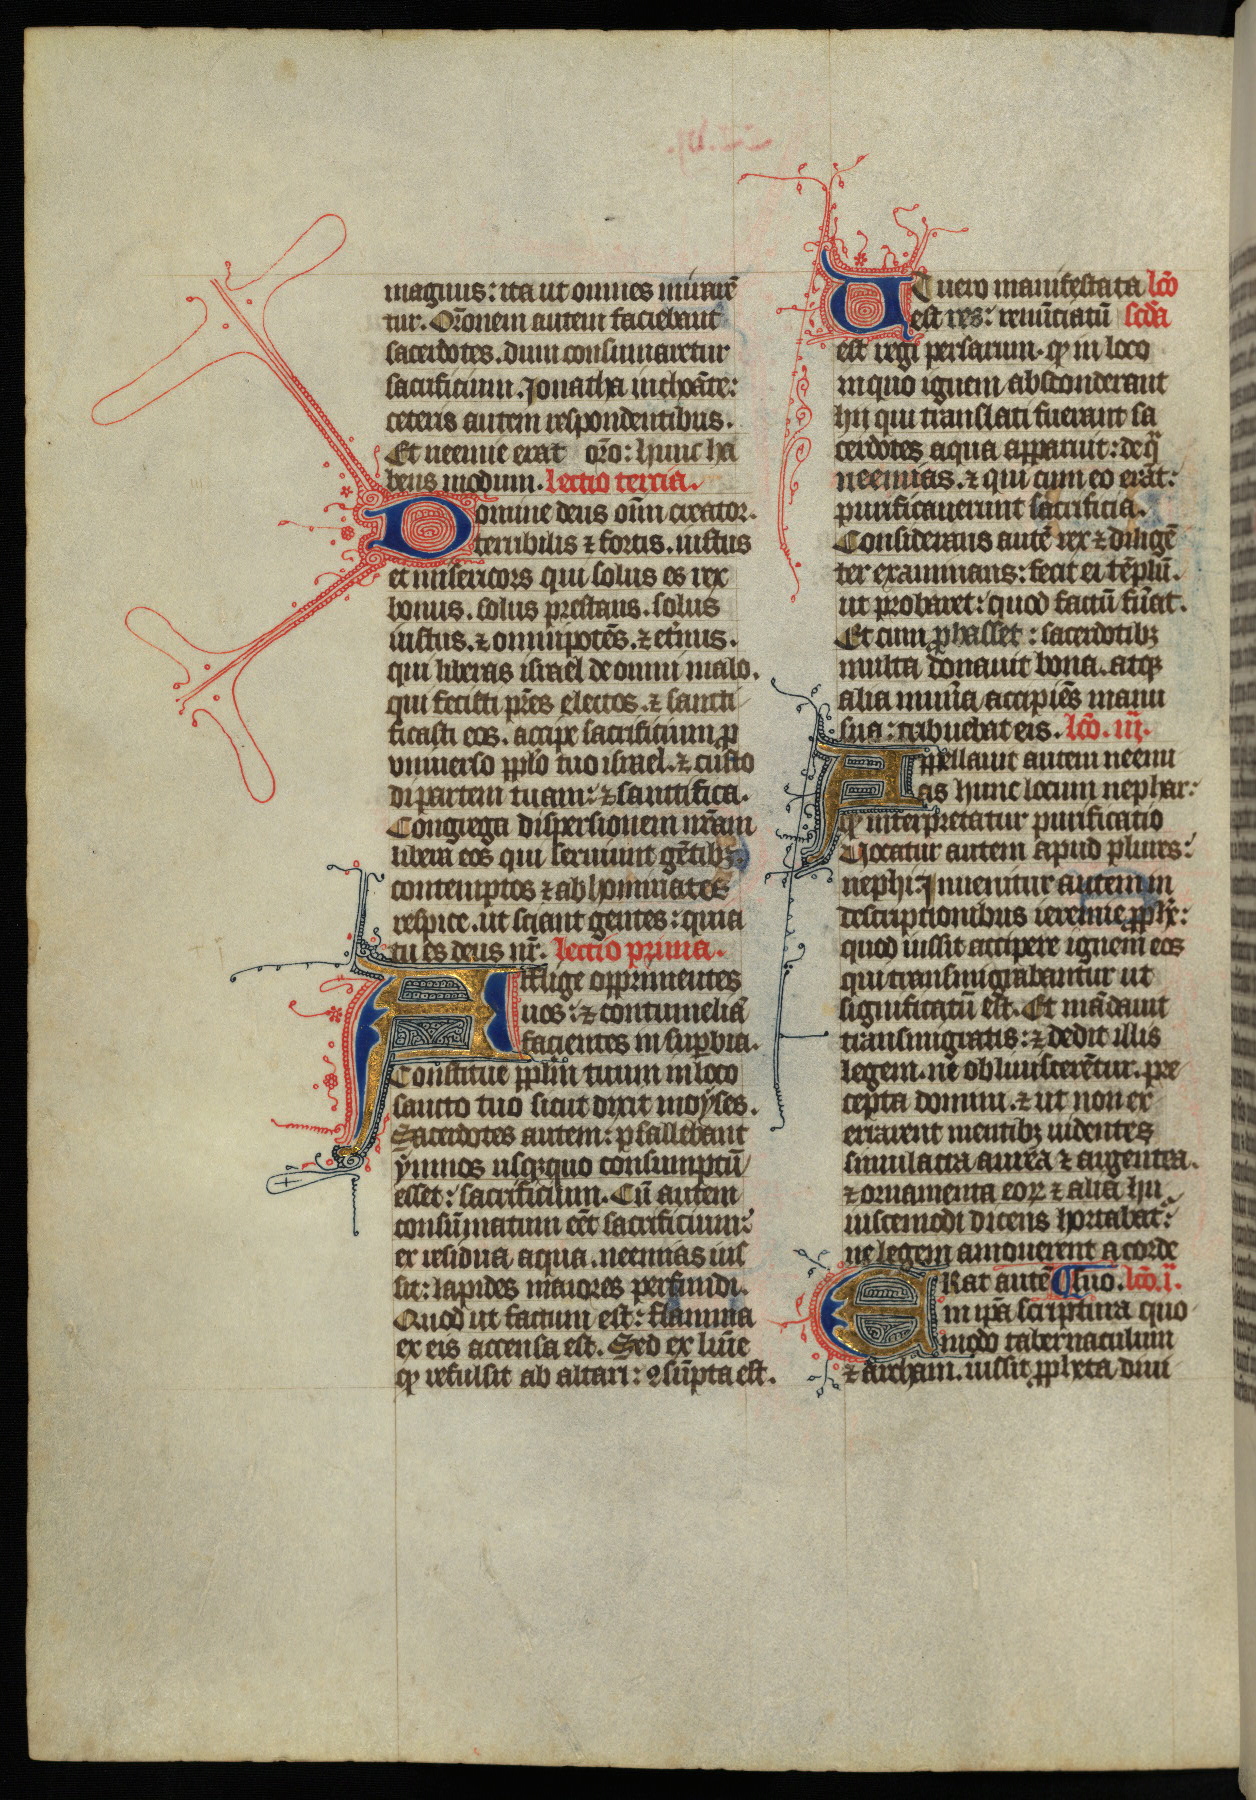 magnus: ita ut omnes mirarē
tur. Or̄onem autem faciebant
sacerdotes. dum consumaretur
sacrificium. Jonatha inchoāte:
ceteris autem respondentibus.
Et neemie erat or̄o: hunc ha
bens modum. lectio tercia.
Domine deus om̄n creator.
terribilis ⁊ fortis. iustus
et misericors qui solus es rex
bonus. solus prestans. solus
iustus. ⁊ omnipotēs. ⁊ et̄nus.
qui liberas israel de omni malo.
qui fecisti pr̄es electos. ⁊ sancti
ficasti eos. accipe sacrificium ꝓ
vniuerso pplo tuo israel. ⁊ custo
di partem tuam: ⁊ sanctifica.
Congrega dispersionem nr̄am
libera eos qui seruiunt gētibꝫ
contemptos ⁊ abhominatos
respice. ut sciant gentes: quia
tu es deus nr̄. lectio prima.
Afflige opprimentes
nos: ⁊ contumeliā
facientes in supbia.
Constitue pplm tuum in loco
sancto tuo sicut dixit moyses.
Sacerdotes autem: psallebant
ymnos usqꝫquo consumptū
esset: sacrificium. Cū autem
consūmatum eēt sacrificium:
ex residua aqua. neemias ius
sit: lapides maiores perfundi.
Quod ut factum est: flamma
ex eis accensa est. Sed ex lūie
qͥ refulsit ab altari: ꝯsūpta est.
Ut uero manifestata lc̄o
est res: renūciatū scd̄a
est regi persarum. qͥ in loco
in quo ignem absconderant
hii qui translati fuerant sa
cerdotes aqua apparuit: de qͣ
neemias. ⁊ qui cum eo erāt:
purificauerunt sacrificia.
Considerans autē rex ⁊ diligē
ter examinans: fecit ei tēplū.
ut probaret: quod factū fūat.
Et cum ꝓbasset: sacerdotibꝫ
multa donauit bona. atqꝫ
alia munīa accipiēs manu
sua: tribuebat eis. lc̄o. iii.
Appellauit autem neemi
as hunc locum nephar:
qͥ interpretatur purificatio
Vocatur autem apud plures:
nephi. Inuenitur autem in
descriptionibus ieremie ꝓphe:
quod iussit accipere ignem eos
qui transmigrabantur ut
significatū est. Et mādauit
transmigratis: ⁊ dedit illis
legem. ne obliuiscerētur. pre
cepta domini. ⁊ ut non ex
errarent mentibꝫ uidentes
simulacra aurea ⁊ argentea.
⁊ ornamenta eoꝝ ⁊ alia hu
iuscemodi dicens hortabat:
ne legem amouerent a corde
ERat autē suo. lc̄o. i.
in ipa scriptura quo
modo tabernaculum
⁊ archam. iussit ꝓpheta diui